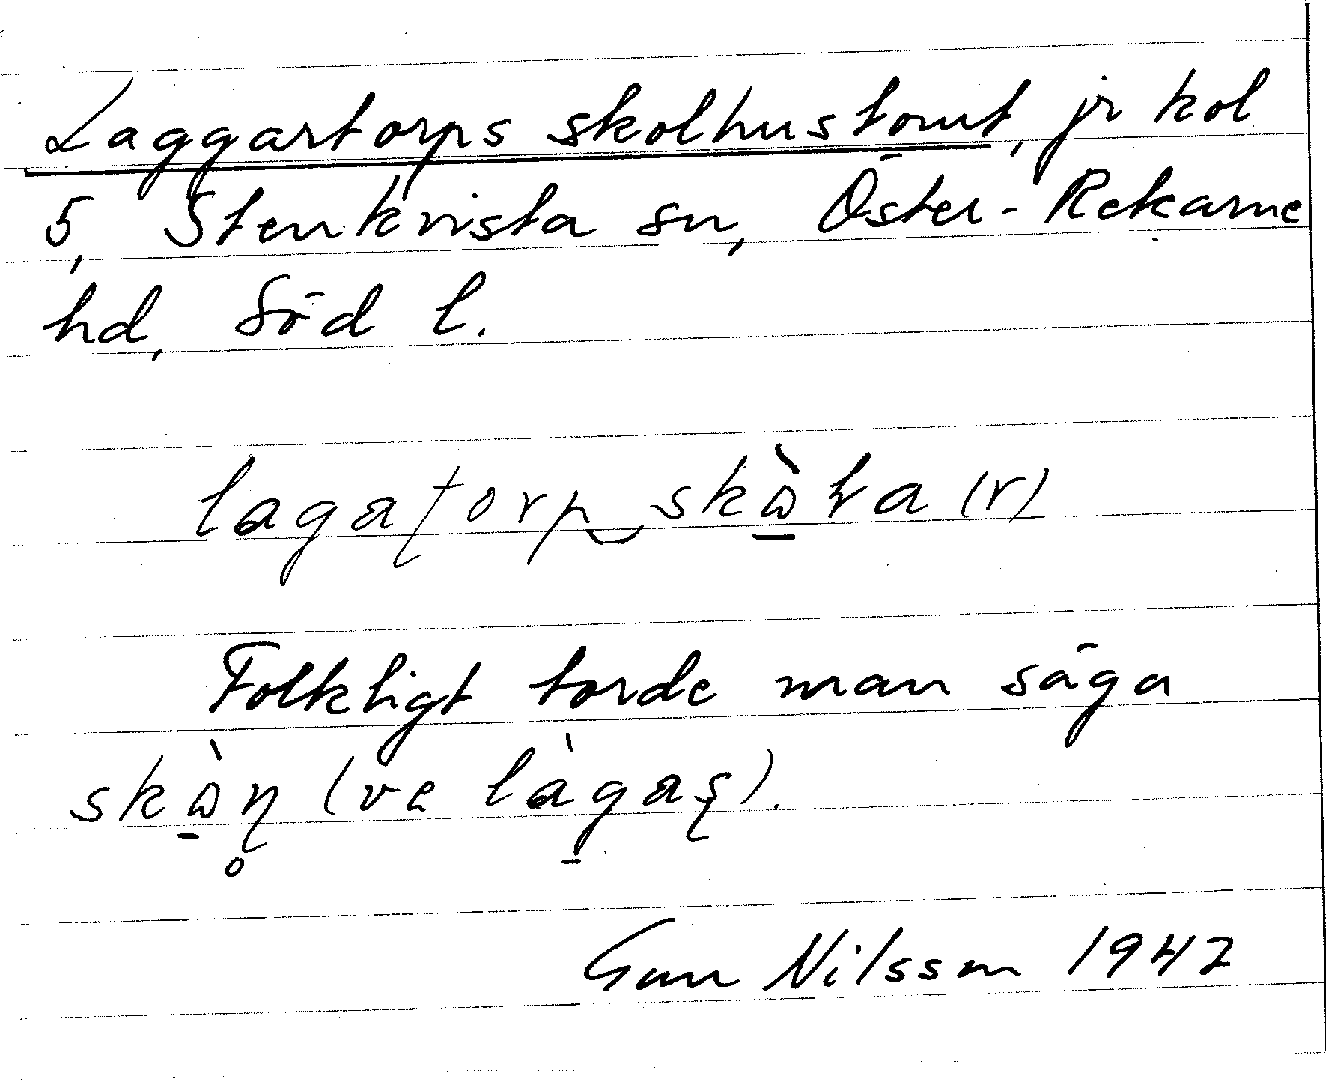 Laggartorps skolhustomt, jr kol
5, Stenkvista sn, Öster-Rekarne
hd, Söd l.
lagaʈorp‿skɷ̠̀ɽa (r)
Folkligt torde man säga
skɷ̠̀ɳ̥ (ve là̠gaʂ).
Gun Nilsson 1947